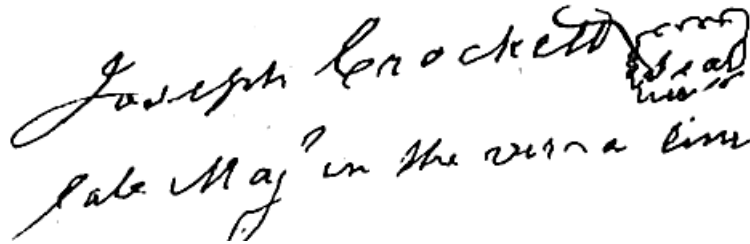 Joseph Crockett Seal
late Majr in the virna line